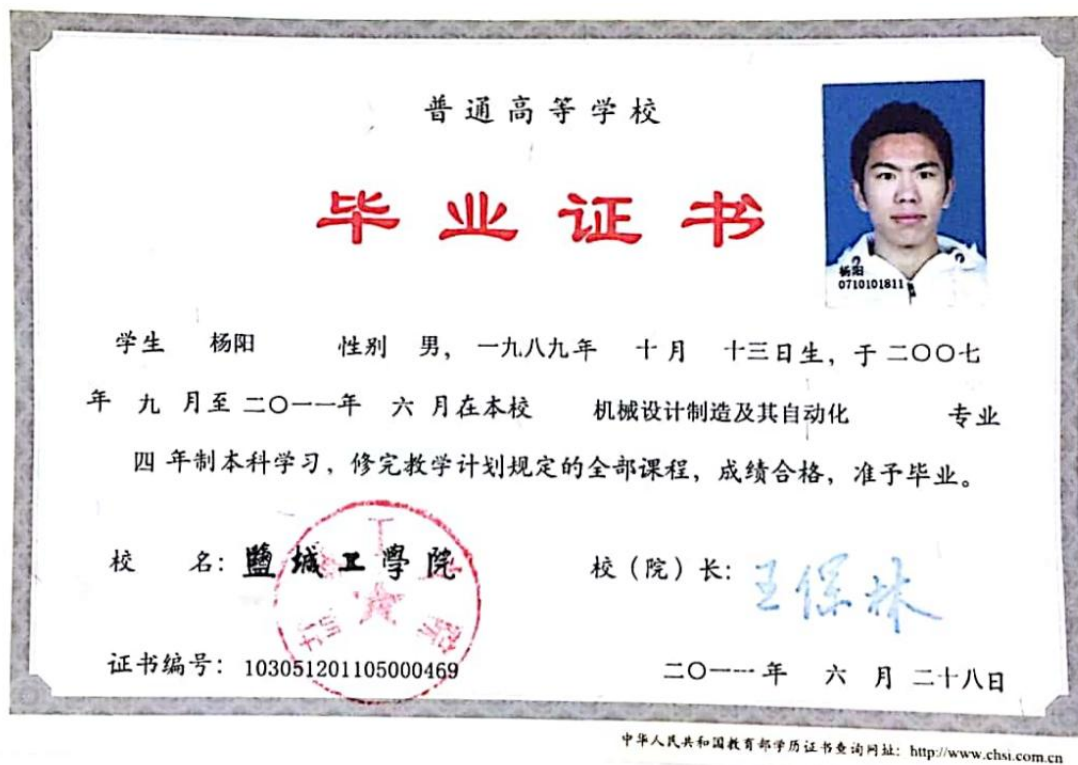 普通高等学校
毕业证书
杨阳
0710101811
学生 杨阳 性别 男，一九八九年 十月 十三日生，于二〇〇七
年 九 月至二〇一一年 六 月在本校 机械设计制造及其自动化 专业
四 年制本科学习，修完教学计划规定的全部课程，成绩合格，准予毕业。
校 名：鹽城工學院
校（院）长：王保林
证书编号：103051201105000469
二〇一一年 六 月 二十八日
中华人民共和国教育部学历证书查询网址：http://www.chsi.com.cn